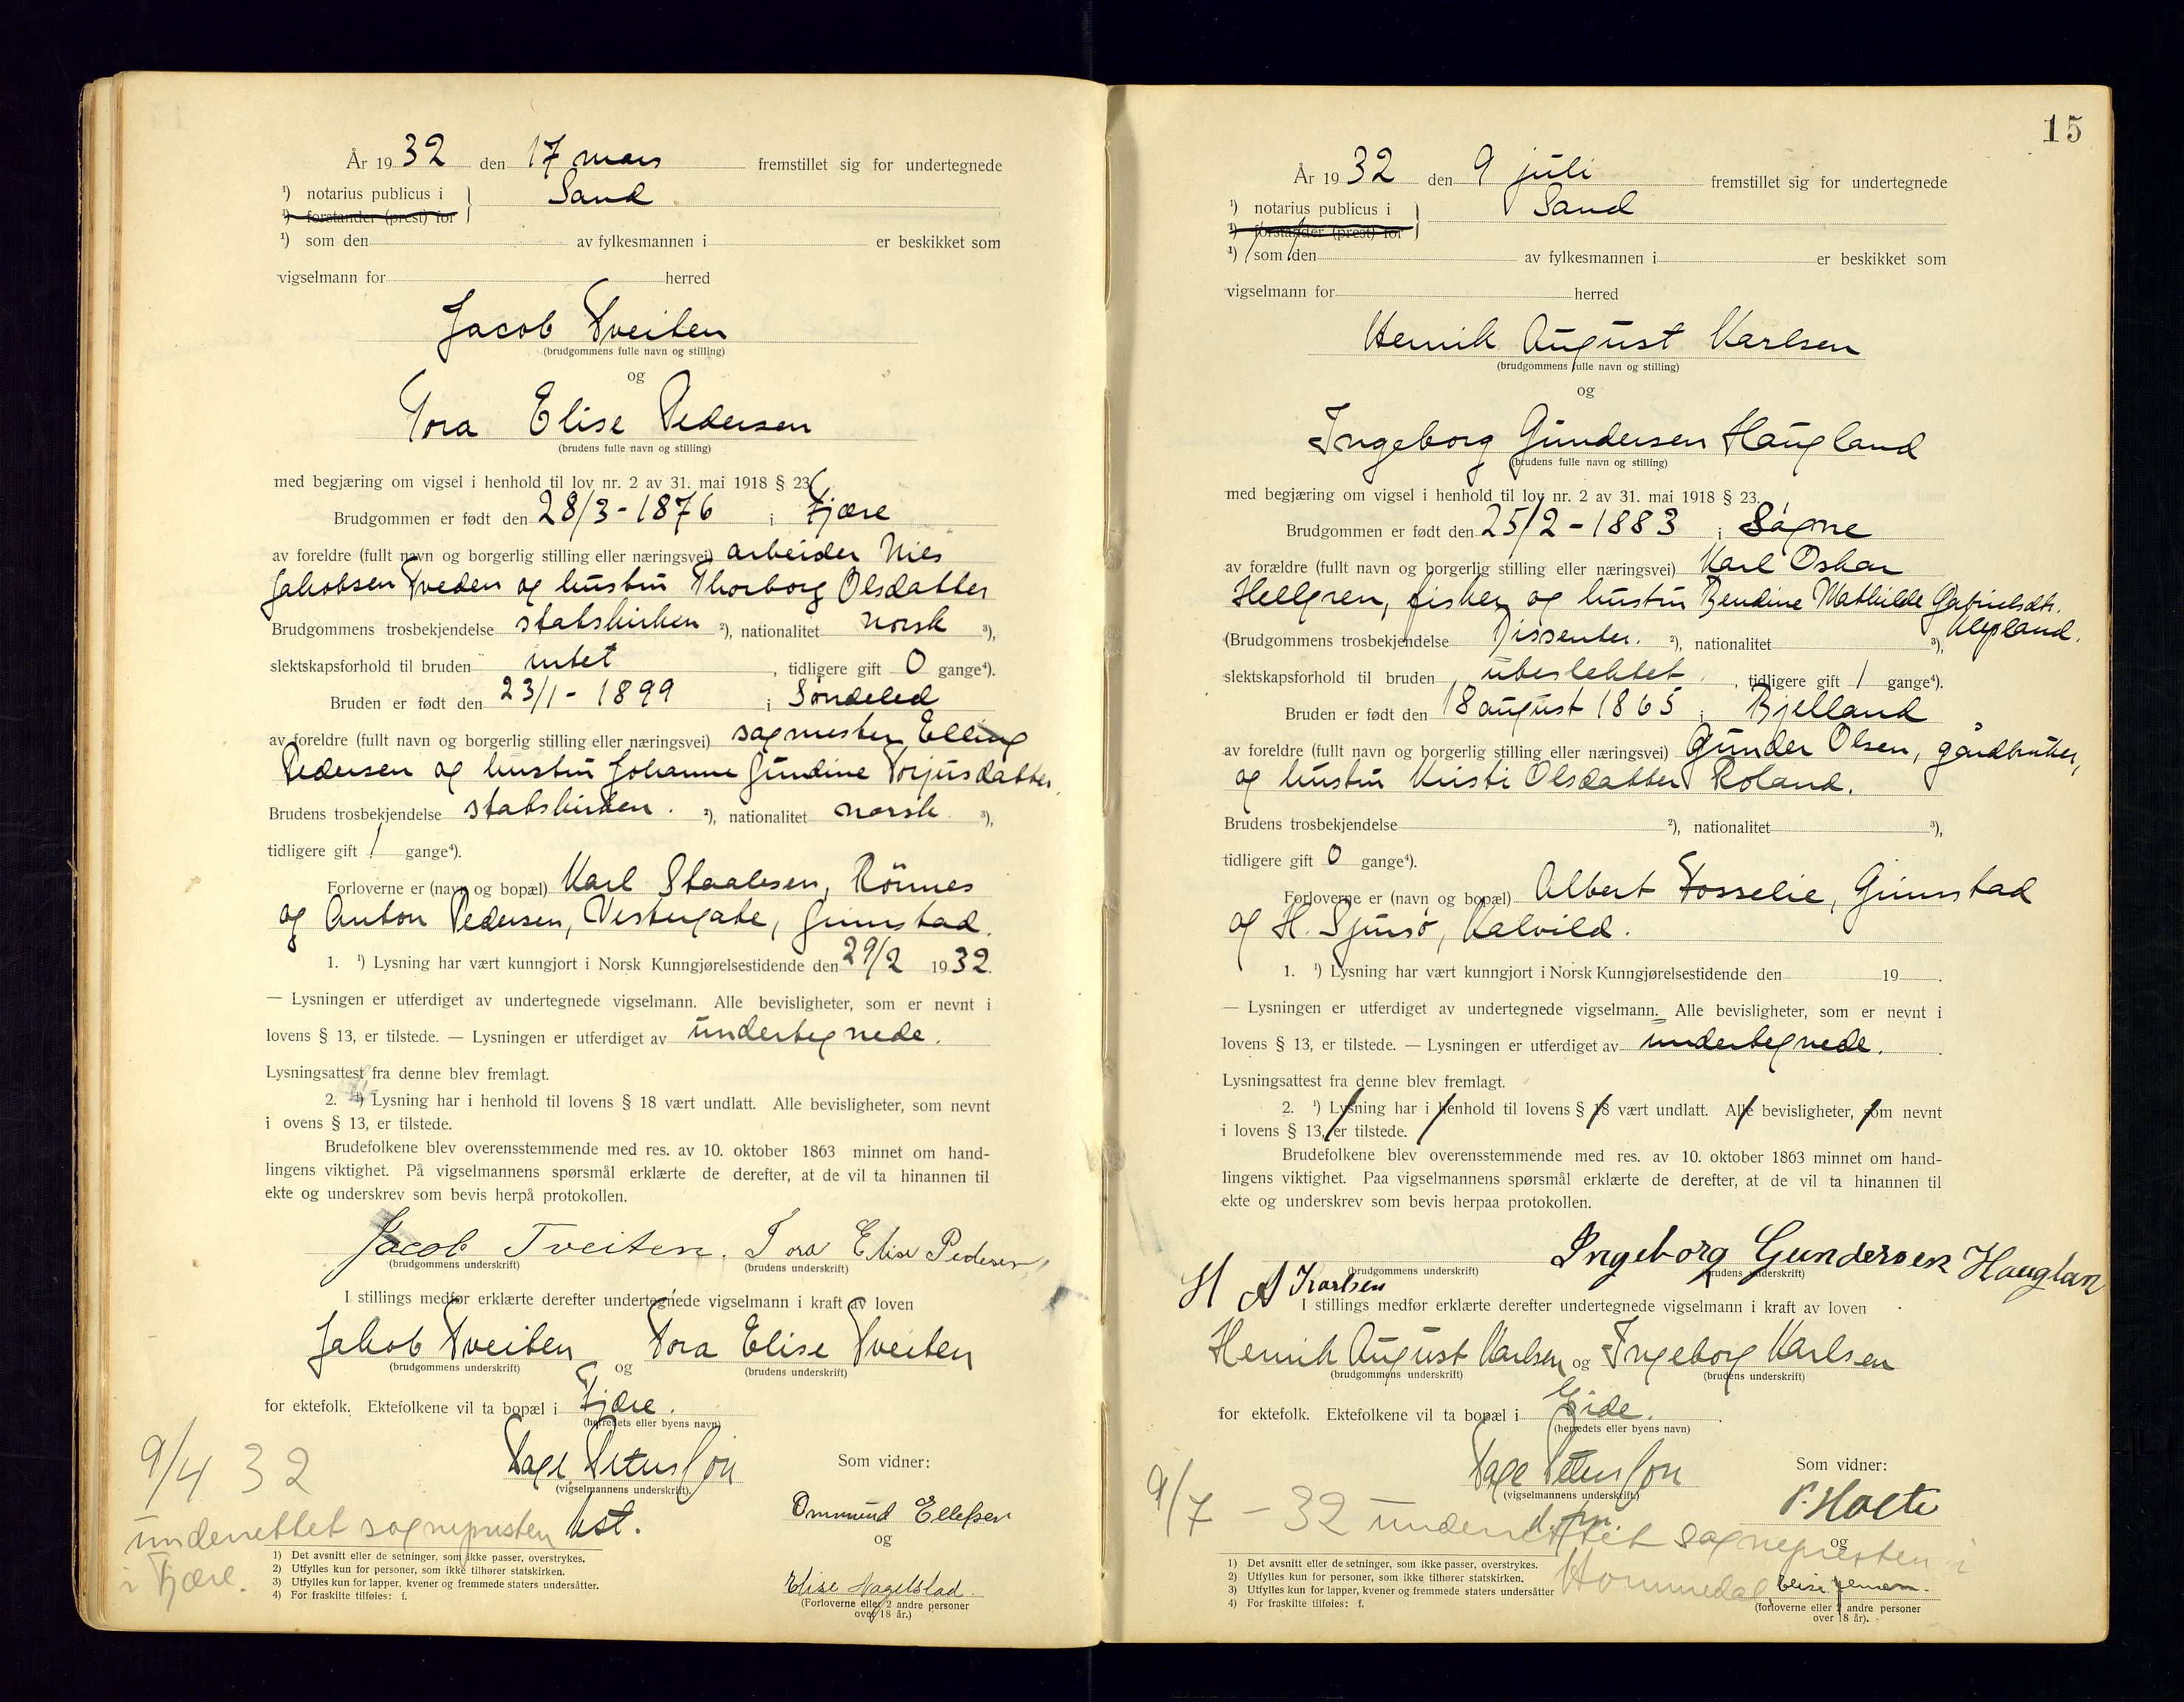 År 1932 den 17 mars fremstillet sig for undertegnede
¹) notarius publicus i } Sand
¹) forstander (prest) for
¹) som den av fylkesmannen i er beskikket som
vigselmann for herred
Jacob Tveiten
(brudgommens fulle navn og stilling)
og
Tora Elise Pedersen
(brudens fulle navn og stilling)
med begjæring om vigsel i henhold til lov nr. 2 av 31. mai 1918 § 23.
Brudgommen er født den 28/3 - 1876 i Fjære
av foreldre (fullt navn og borgerlig stilling eller næringsvei) arbeider Nils
Jakobsen Tveden og hustru Thorborg Olsdatter
Brudgommens trosbekjendelse statskirken ²), nationalitet norsk ³),
slektskapsforhold til bruden intet, tidligere gift 0 gange⁴).
Bruden er født den 23/1 - 1899 i Søndeled
av foreldre (fullt navn og borgerlig stilling eller næringsvei) sagmester Elling
Pedersen og hustru Johanne Gundine Torjusdatter.
Brudens trosbekjendelse statskirken. ²), nationalitet norsk ³),
tidligere gift 1 gange⁴).
Forloverne er (navn og bopæl) Karl Staalesen, Rønnes
og Anton Pedersen, Vestergate, Grimstad.
1. ¹) Lysning har vært kunngjort i Norsk Kunngjørelsestidende den 29/2 1932.
— Lysningen er utferdiget av undertegnede vigselmann. Alle bevisligheter, som er nevnt i
lovens § 13, er tilstede. — Lysningen er utferdiget av undertegnede.
Lysningsattest fra denne blev fremlagt.
2. ¹) Lysning har i henhold til lovens § 18 vært undlatt. Alle bevisligheter, som nevnt
i ovens § 13, er tilstede.
Brudefolkene blev overensstemmende med res. av 10. oktober 1863 minnet om hand-
lingens viktighet. På vigselmannens spørsmål erklærte de derefter, at de vil ta hinannen til
ekte og underskrev som bevis herpå protokollen.
Jacob Tveiten. Tora Elise Pedersen
(brudgommens underskrift) (brudens underskrift)
I stillings medfør erklærte derefter undertegnede vigselmann i kraft av loven
Jakob Tveiten og Tora Elise Tveiten
(brudgommens underskrift) (brudens underskrift)
for ektefolk. Ektefolkene vil ta bopæl i Fjære.
(herredets eller byens navn)
Tage Peterson
(vigselmannens underskrift).
kst.
Som vidner:
Ommund Ellefsen
og
Elise Nagelstad
(Forloverne eller 2 andre personer
over 18 år.)
9/4 32
underrettet sognepresten
i Fjære.
1) Det avsnitt eller de setninger, som ikke passer, overstrykes.
2) Utfylles kun for personer, som ikke tilhører statskirken.
3) Utfylles kun for lapper, kvener og fremmede staters undersåtter.
4) For fraskilte tilføies: f.
15
År 1932 den 9 juli fremstillet sig for undertegnede
¹) notarius publicus i } Sand
¹) forstander (prest) for
¹) som den av fylkesmannen i er beskikket som
vigselmann for herred
Henrik August Karlsen
(brudgommens fulle navn og stilling)
og
Ingeborg Gundersen Haugland
(brudens fulle navn og stilling)
med begjæring om vigsel i henhold til lov nr. 2 av 31. mai 1918 § 23.
Brudgommen er født den 25/2 - 1883 i Søgne
av forældre (fullt navn og borgerlig stilling eller næringsvei) Karl Oskar
Hellgren, fisker og hustru Bendine Mathilde Gabrielsdtr.
Klepland.
(Brudgommens trosbekjendelse Dissenter. ²), nationalitet ³),
slektskapsforhold til bruden ubeslektet, tidligere gift 1 gange⁴).
Bruden er født den 18 august 1865 i Bjelland
av foreldre (fullt navn og borgerlig stilling eller næringsvei) Gunder Olsen, gårdbruker,
og hustru Kristi Olsdatter Roland.
Brudens trosbekjendelse ²), nationalitet ³),
tidligere gift 0 gange⁴).
Forloverne er (navn og bopæl) Albert Fosselie, Grimstad
og H. Sjursø, Kalvild.
1. ¹) Lysning har vært kunngjort i Norsk Kunngjørelsestidende den 19 .
— Lysningen er utferdiget av undertegnede vigselmann. Alle bevisligheter, som er nevnt i
lovens § 13, er tilstede. — Lysningen er utferdiget av undertegnede.
Lysningsattest fra denne blev fremlagt.
2. ¹) Lysning har i henhold til lovens § 18 vært undlatt. Alle bevisligheter, som nevnt
i lovens § 13, er tilstede.
Brudefolkene blev overensstemmende med res. av 10. oktober 1863 minnet om hand-
lingens viktighet. Paa vigselmannens spørsmål erklærte de derefter, at de vil ta hinannen til
ekte og underskrev som bevis herpaa protokollen.
H A Karlsen Ingeborg Gundersen Hauglan
(brudgommens underskrift) (brudens underskrift)
I stillings medfør erklærte derefter undertegnede vigselmann i kraft av loven
Henrik August Karlsen og Ingeborg Karlsen
(brudgommens underskrift) (brudens underskrift)
for ektefolk. Ektefolkene vil ta bopæl i Eide.
(herredets eller byens navn)
Tage Peterson
(vigselmannens underskrift)
Som vidner:
P. Holte
og
Elise
(forloverne eller 2 andre personer
over 18 år).
9/7 - 32 underrettet sognepresten i
Hommedal
1) Det avsnitt eller de setninger, som ikke passer, overstrykes.
2) Utfylles kun for personer, som ikke tilhører statskirken.
3) Utfylles kun for lapper, kvener og fremmede staters undersåtter
4) For fraskilte tilføies: f.